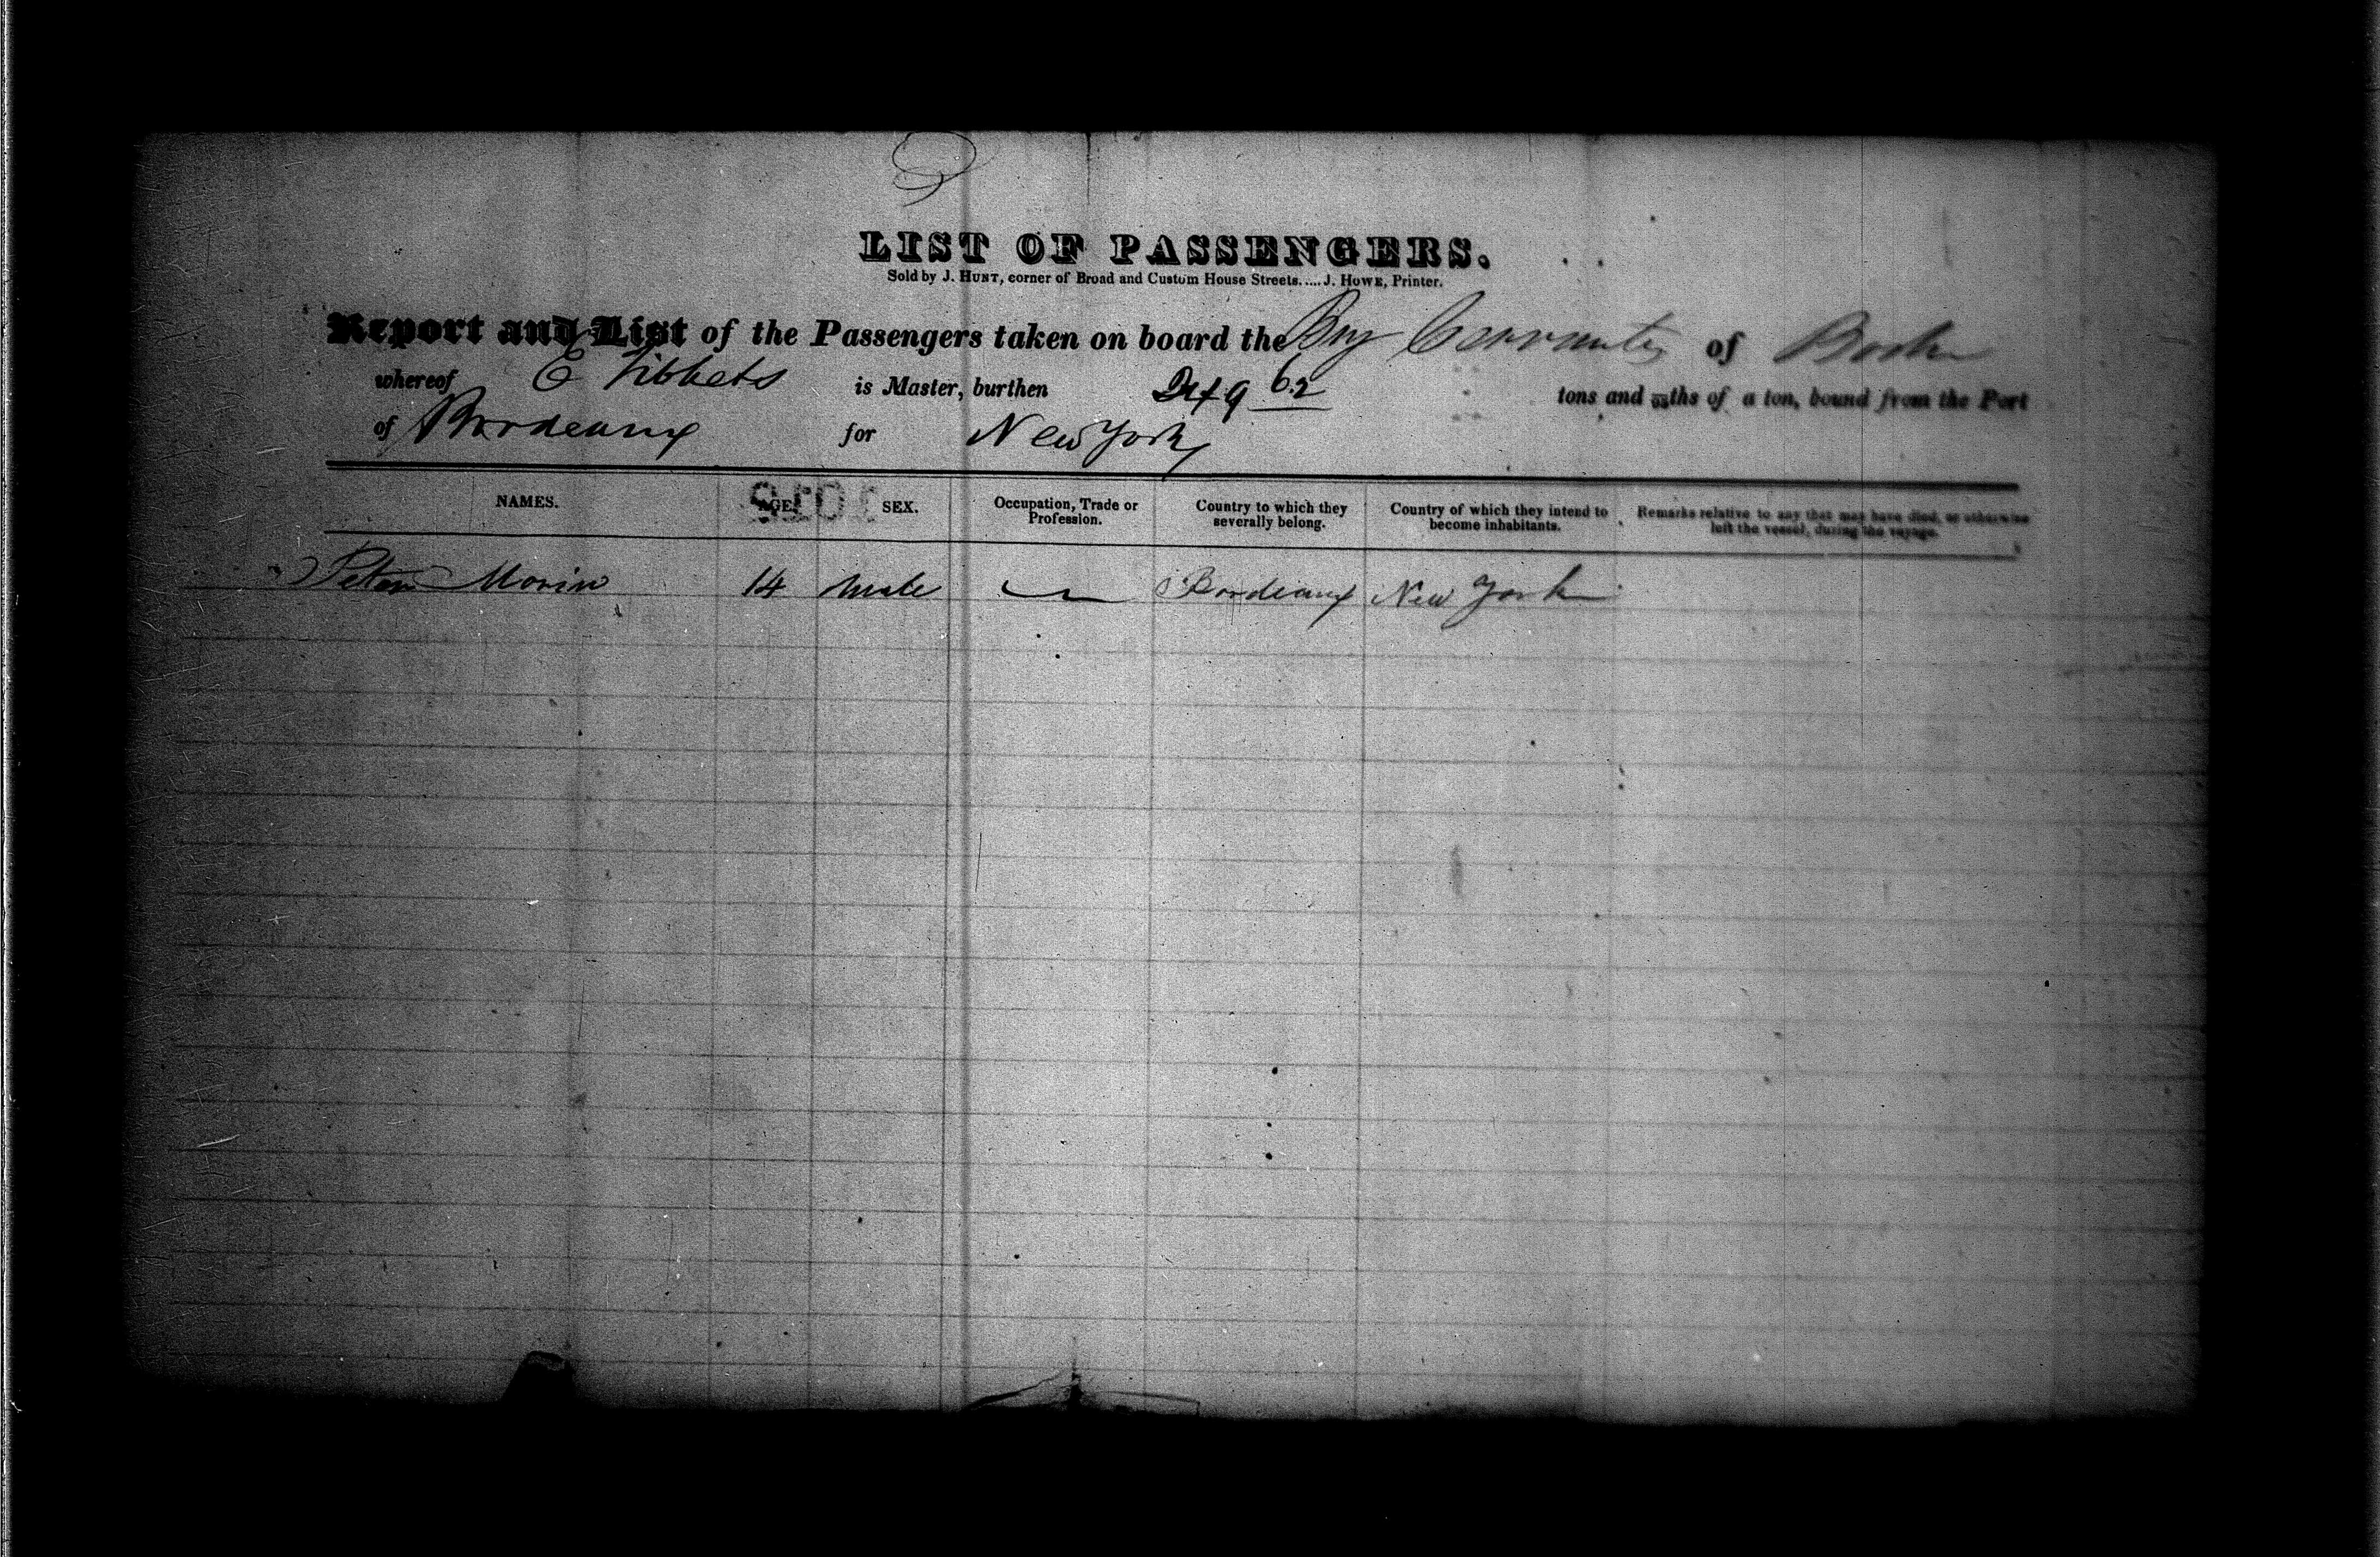 LIST OF PASSENGERS.
Sold by J. HUNT, corner of Broad and Custom House Streets.....J. HOWE, Printer.
Report and List of the Passengers taken on board the Brig Cervantes of Boston
whereof E Tibbets is Master, burthen 62 tons and ths of a ton, bound from the Port
of Bordeaux for New York
NAMES. AGE SEX. Occupation, Trade or Profession. Country to which they severally belong. Country of which they intend to become inhabitants. Remarks relative to any that may have died, or otherwise left the vessel, during the voyage.
Peter Morin 14 Male Bordeaux New York